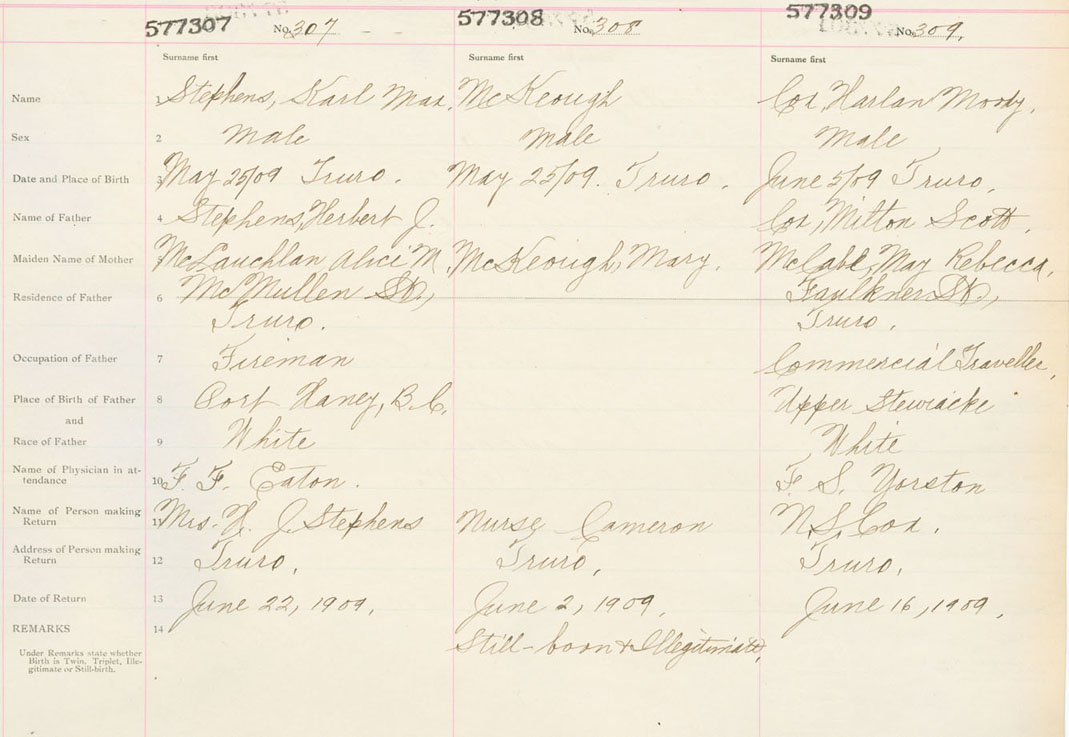 577307 No. 307 577308 No. 308 577309 No. 309.
Surname first Surname first Surname first
Name 1 Stephens, Karl Max. McKeough Cox, Harlan Moody.
Sex 2 Male Male Male
Date and Place of Birth 3 May 25/09 Truro. May 25/09. Truro. June 5/09 Truro.
Name of Father 4 Stephens, Herbert J. Cox, Milton Scott.
Maiden Name of Mother 5 McLauchlan Alice M. McKeough, Mary. McCabe, May Rebecca.
Residence of Father 6 McMullen St., Faulkner St.,
Truro. Truro.
Occupation of Father 7 Fireman Commercial Traveller.
Place of Birth of Father 8 Port Haney, B.C. Upper Stewiacke
and
Race of Father 9 White White
Name of Physician in at-
tendance 10 F. F. Eaton. F. S. Yorston
Name of Person making
Return 11 Mrs. H. J. Stephens Nurse Cameron Cox.
Address of Person making
Return 12 Truro. Truro. Truro.
Date of Return 13 June 22, 1909. June 2, 1909. June 16, 1909.
REMARKS 14 Still-born & Illegitimate.
Under Remarks state whether
Birth is Twin, Triplet, Ille-
gitimate or Still-birth.